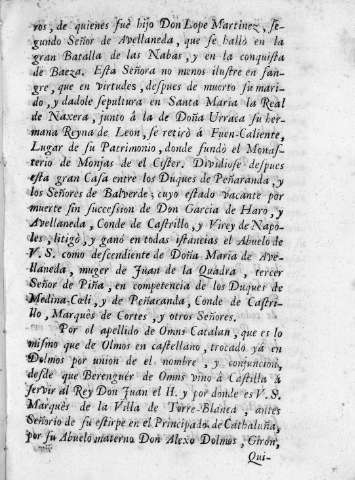 ros, de quienes fuè hijo Don Lope Martinez, se-
gundo Señor de Avellaneda, que se hallò en la
gran Batalla de las Nabas, y en la conquista
de Baeza. Esta Señora no menos ilustre en san-
gre, que en virtudes, despues de muerto su mari-
do, y dadole sepultura en Santa Maria la Real
de Naxera, junto à la de Doña Urraca su her-
mana Reyna de Leon, se retirò à Fuen-Caliente,
Lugar de su Patrimonio, donde fundò el Monas-
terio de Monjas de el Cister. Dividiòse despues
esta gran Casa entre los Duques de Peñaranda, y
los Señores de Balverde; cuyo estado vacante por
muerte sin succession de Don Garcia de Haro, y
Avellaneda, Conde de Castrillo, y Virey de Napo-
les, litigò, y ganò en todas istancias el Abuelo de
V. S. como descendiente de Doña Maria de Ave-
llaneda, muger de Juan de la Quadra, tercer
Señor de Piña, en competencia de los Duques de
Medina-Cœli, y de Peñacanda, Conde de Castri-
llo, Marquès de Cortes, y otros Señores.
Por el apellido de Omns Catalan, que es lo
mismo que de Olmos en castellano, trocado yà en
Dolmos por union de el nombre, y conjuncion,
desde que Berenguèr de Omns vino à Castilla à
servir al Rey Don Juan el II. y por donde es V. S.
Marquès de la Villa de Torre-Blanca, antes
Señorio de su estirpe en el Principado de Cathaluña,
por su Abuelo materno Don Alexo Dolmos, Giròn,
Qui-